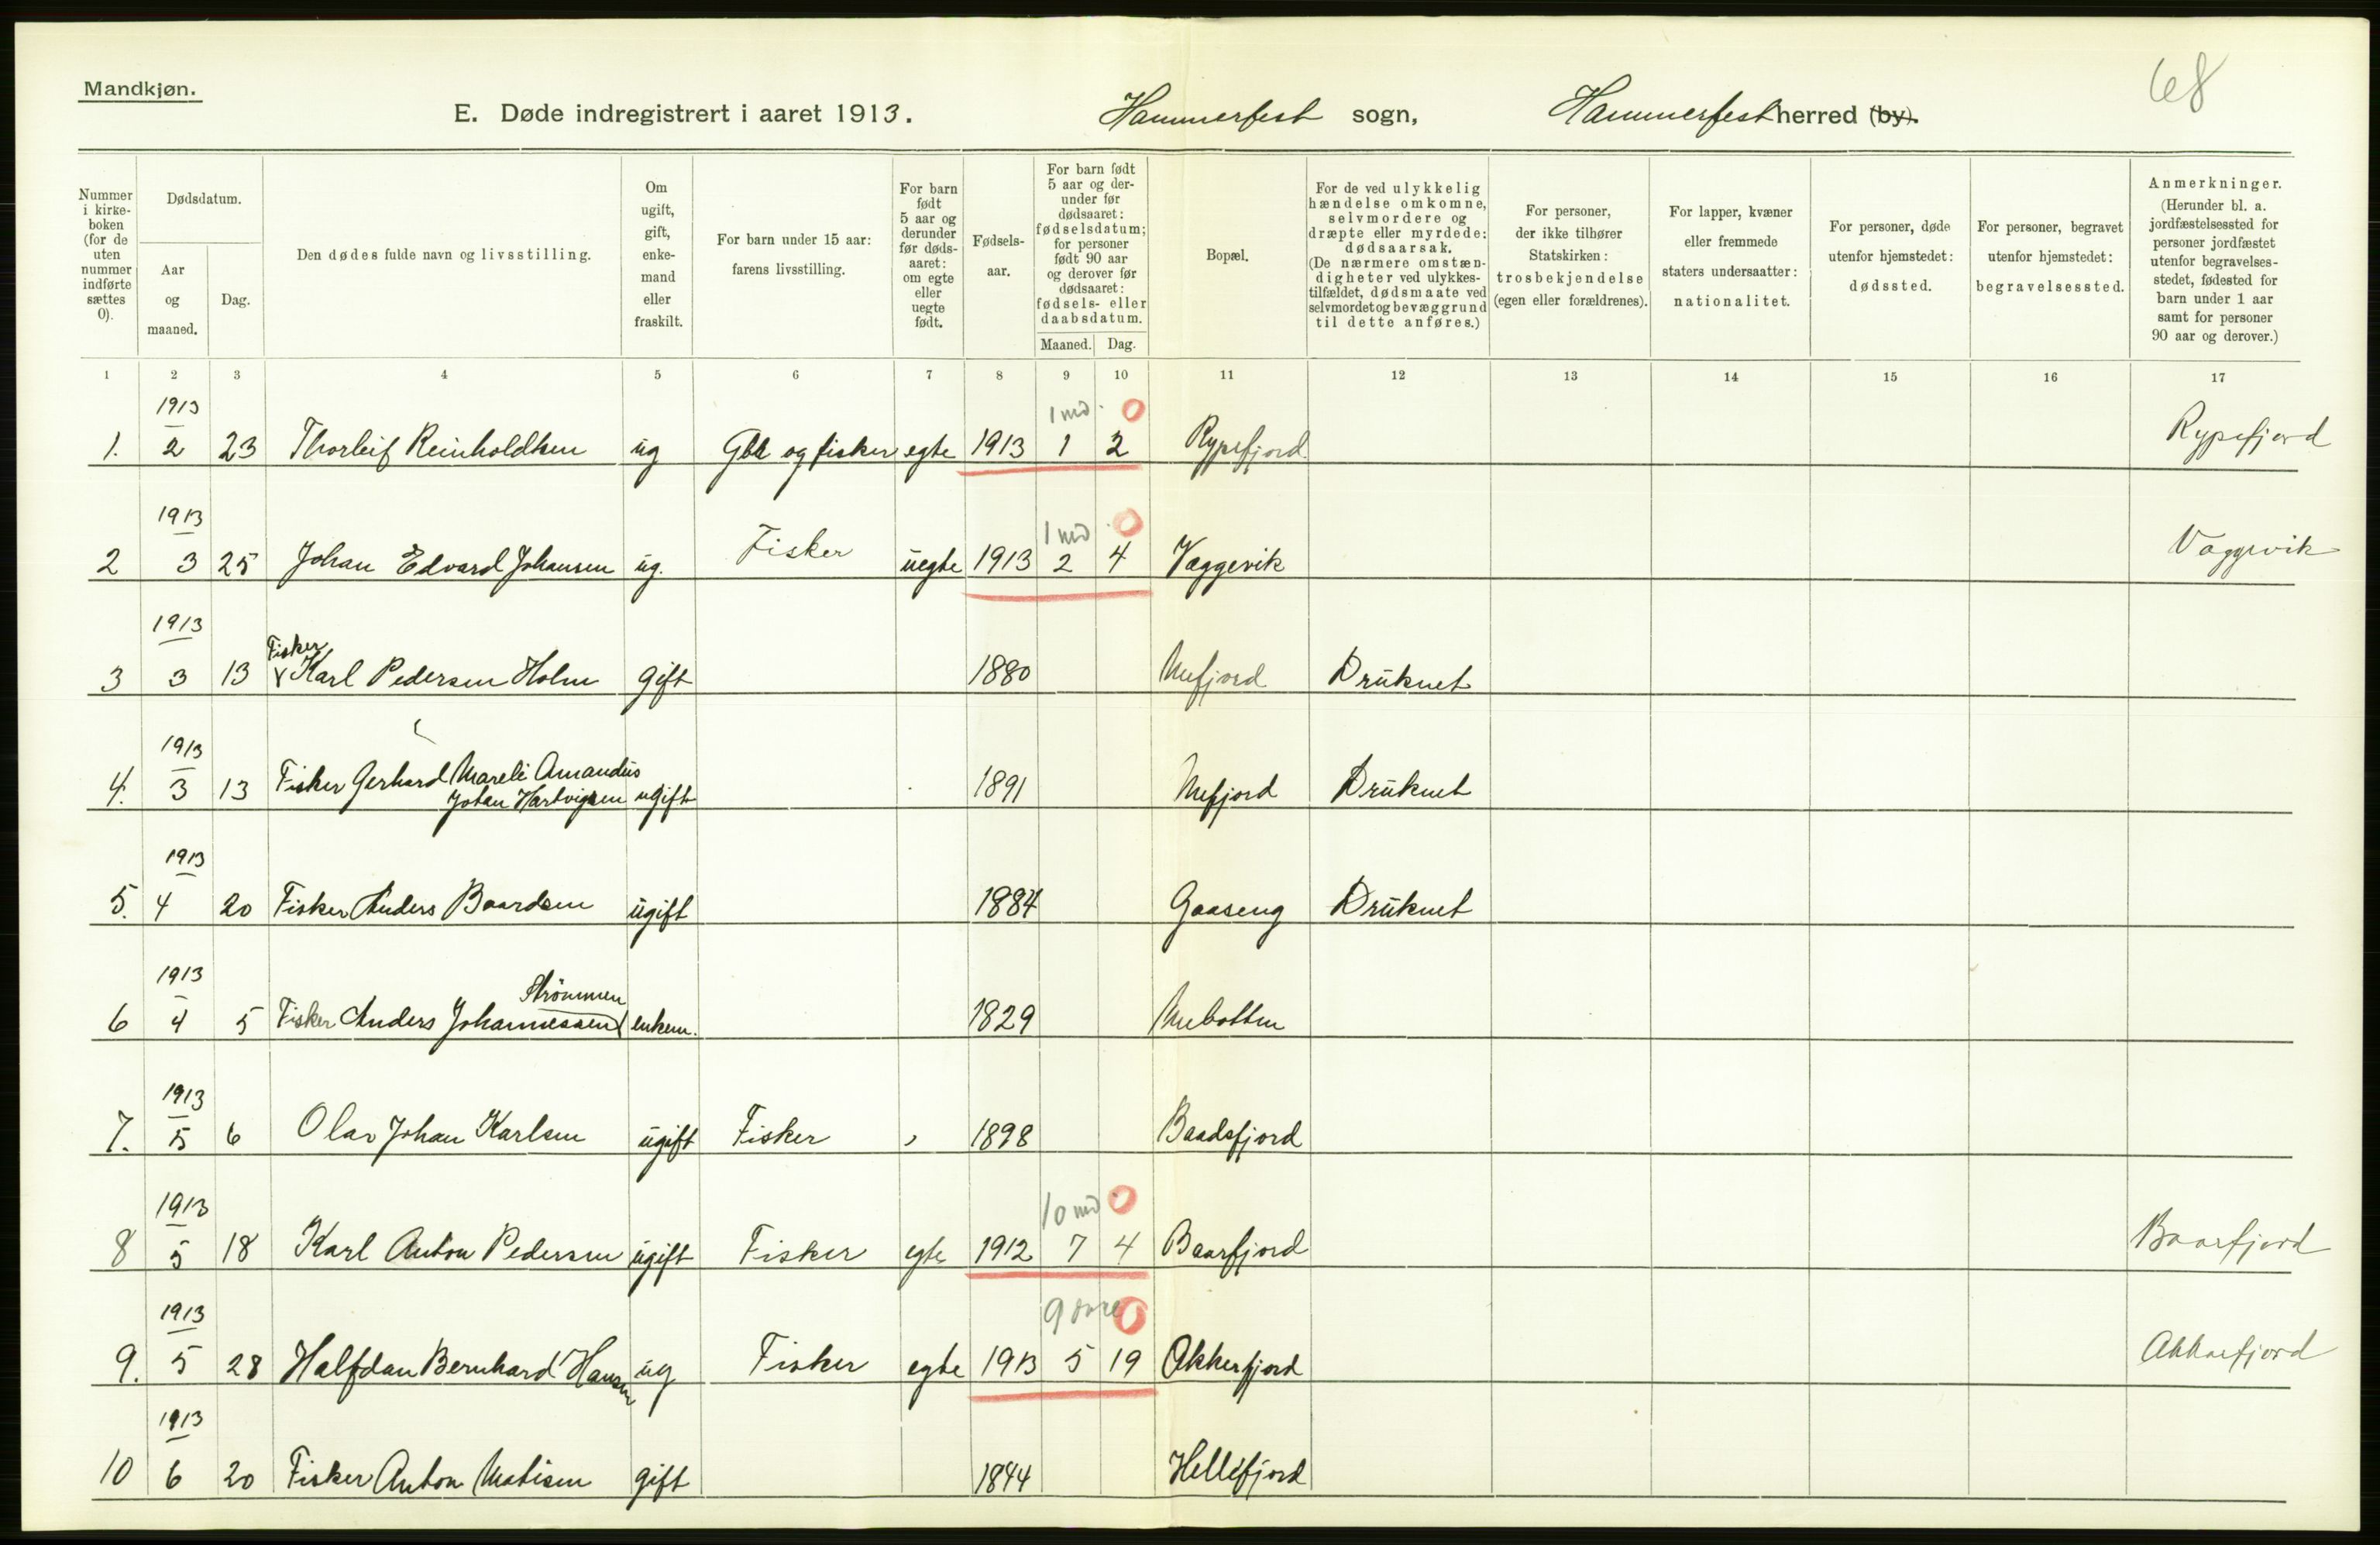 68
Mandkjøn.
E. Døde indregistrert i aaret 1913. Hammerfest sogn, Hammerfest herred (by).
Nummer i kirke-boken (for de uten nummer indførte sættes 0).
Dødsdatum.
Aar og maaned.
Dag.
Den dødes fulde navn og livsstilling.
Om ugift, gift, enke-mand eller fraskilt.
For barn under 15 aar: farens livsstilling.
For barn født 5 aar og derunder før døds-aaret: om egte eller uegte født.
Fødsels-aar.
For barn født 5 aar og der-under før dødsaaret: fødselsdatum; for personer født 90 aar og derover før dødsaaret: fødsels- eller daabsdatum.
Maaned. Dag.
Bopæl.
For de ved ulykkelig hændelse omkomne, selvmordere og dræpte eller myrdede: dødsaarsak. (De nærmere omstæn-digheter ved ulykkes-tilfældet, dødsmaate ved selvmordet og bevæggrund til dette anføres.)
For personer, der ikke tilhører Statskirken: trosbekjendelse (egen eller forældrenes).
For lapper, kvæner eller fremmede staters undersaatter: nationalitet.
For personer, døde utenfor hjemstedet: dødssted.
For personer, begravet utenfor hjemstedet: begravelsessted.
Anmerkninger. (Herunder bl. a. jordfæstelsessted for personer jordfæstet utenfor begravelses-stedet, fødested for barn under 1 aar samt for personer 90 aar og derover.)
1 2 3 4 5 6 7 8 9 10 11 12 13 14 15 16 17
1913 1 md. 0
1. 2 23 Thorleif Reinholdtsen ug Gbr og fisker egte 1913 1 2 Rypefjord Rypefjord
1913 1 md 0
2 3 25 Johan Edvard Johansen ug. Fisker uegte 1913 2 4 Vaggevik Vaggevik
1913
Fisker
3 3 13 Karl Pedersen Holm gift 1880 Mefjord Druknet
1913
4. 3 13 Fisker Gerhard Mareli Amandus
Johan Hartvigsen ugift 1891 Mefjord Druknet
1913
5. 4 20 Fisker Anders Baardsen ugift 1884 Gaaseng Druknet
1913
Strömmen
6 4 5 Fisker Anders Johannessen enkem. 1829 Mebotten
1913
7. 5 6 Olav Johan Karlsen ugift Fisker , 1898 Baadsfjord
1913 10 md 0
8 5 18 Karl Anton Pedersen ugift Fisker egte 1912 7 4 Baarfjord Baarfjord
1913 9 0
9. 5 28 Halfdan Bernhard Hansen ug Fisker egte 1913 5 19 Akkerfjord Akkarfjord
1913
10 6 20 Fisker Anton Matisen gift 1844 Hellefjord